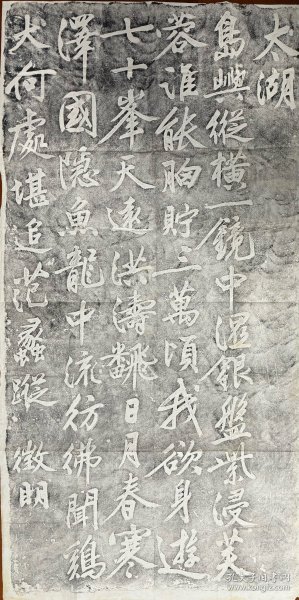 太湖
島嶼縱橫一鏡中溼銀盤紫浸芙
蓉誰能胸貯三萬頃我欲身遊
七十峯天遠洪濤飜日月春寒
澤國隱魚龍中流彷彿聞鷄
犬何處堪追范蠡蹤 徵明
孔夫子旧书网